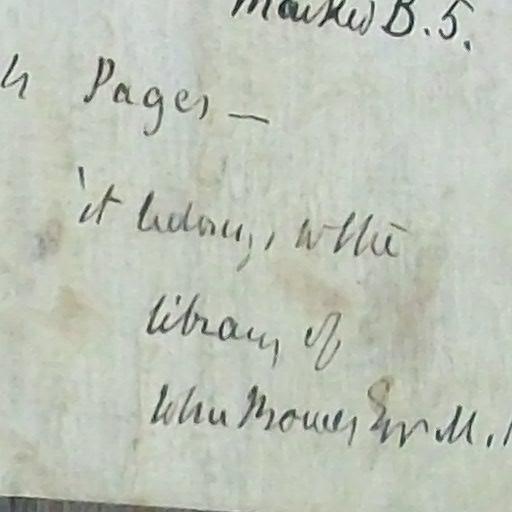 Marked B.5.
Pages —
it belongs to the
library of
John Bowes Esqr M.